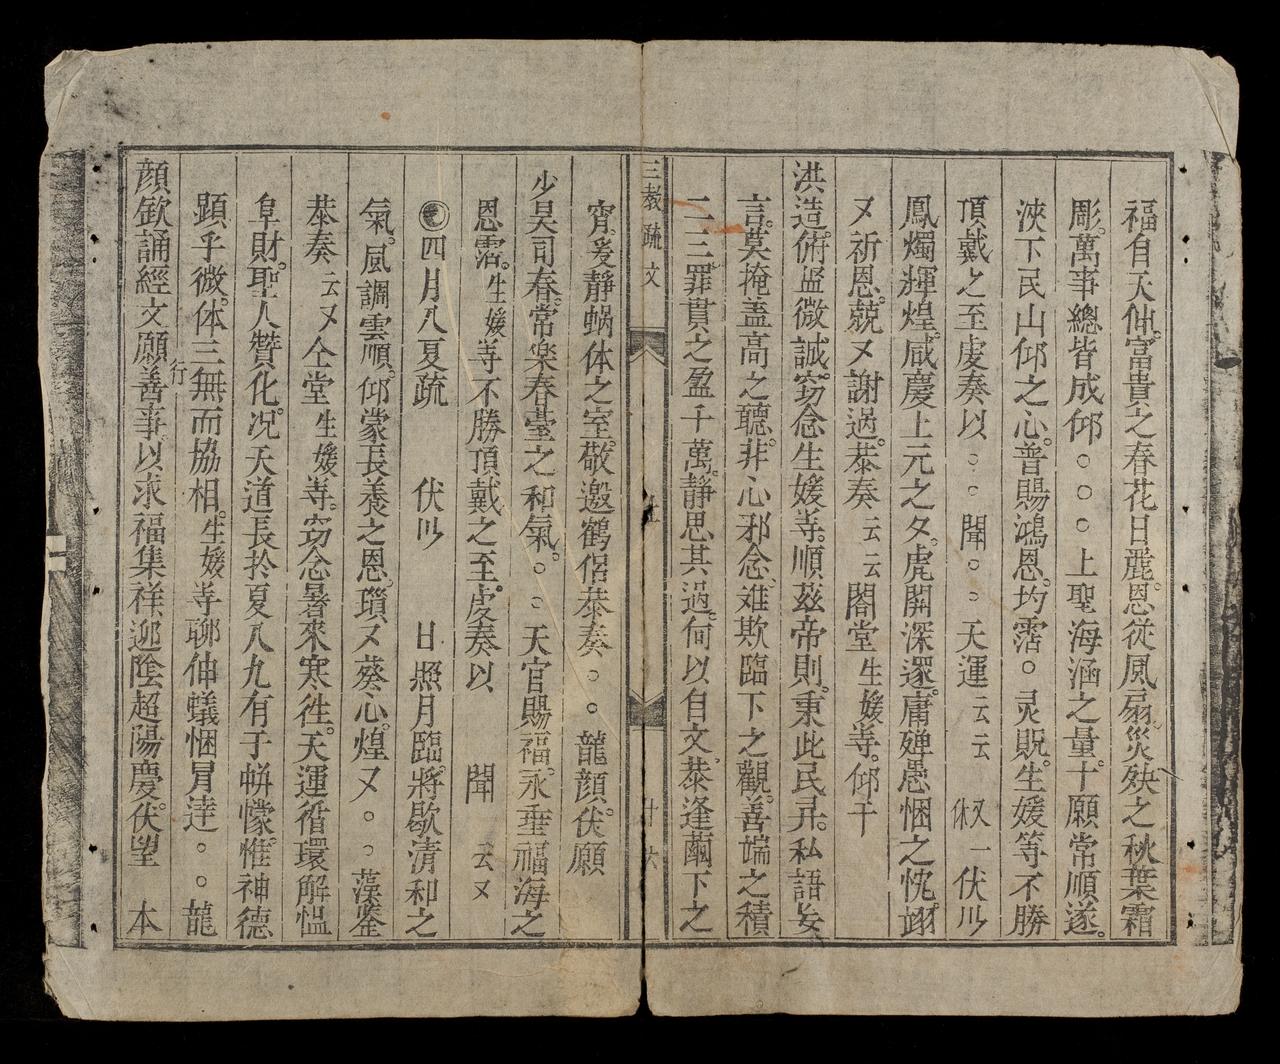 福自天伸。富貴之春花日麗。恩從風扇。災殃之秋葉霜
彫。萬事總皆成仰○○○上聖海涵之量。十願常順遂。
浹下民山仰之心。普賜鴻恩。均霑○灵貺。生媛等不勝
頂戴之至虔奏以○○聞○○天運云云 又一伏以
鳳燭輝煌。咸慶上元之夕。虎關深邃。庸殫愚悃之忱。翊
又祈恩。兢又謝過。恭奏云云閣堂生媛等。仰干
洪造。俯盟微誠。窃念生媛等。順茲帝則。秉此民彛。私語妄
言。莫掩盖高之聽。非心邪念。难欺臨下之觀。善端之積
二三。罪貫之盈千萬。靜思其過。何以自文。恭逢繭下之
三教疏文 廿六
宵。爰靜蝸体之室。敬邀鶴侶恭奏○○龍顏。伏願
少昊司春。常楽春臺之和氣○○天官賜福。永垂福海之
恩霑。生媛等不勝頂戴之至。虔奏以 聞 云又
四月八夏疏 伏以 日照月臨。將歇清和之
氣。風調雲順。仰蒙長養之恩。瓆又葵心。煌又○○藻鑒
恭奏云又仝堂生媛等。窃念暑來寒徃。天運循環解慍
阜財。聖人贊化。况天道長於夏八九有于帡幪。惟神德
顕乎微。体三無而協相。生媛等聊伸蟻悃冐達○○龍
行
顔欽誦經文願善事以求福集祥迎陰超陽慶。伏望 本